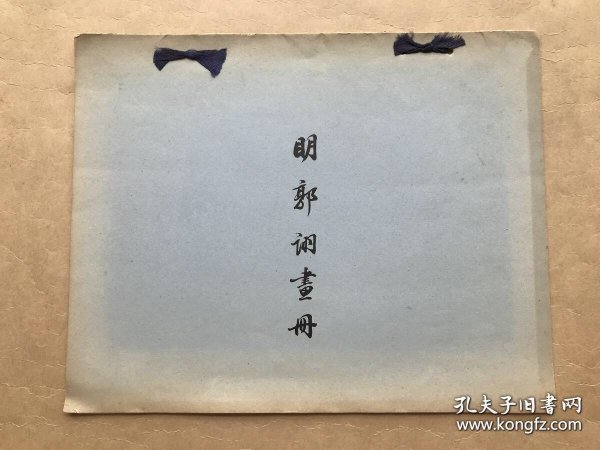 明郭詡畫冊
孔夫子旧書网
www.kongfz.com